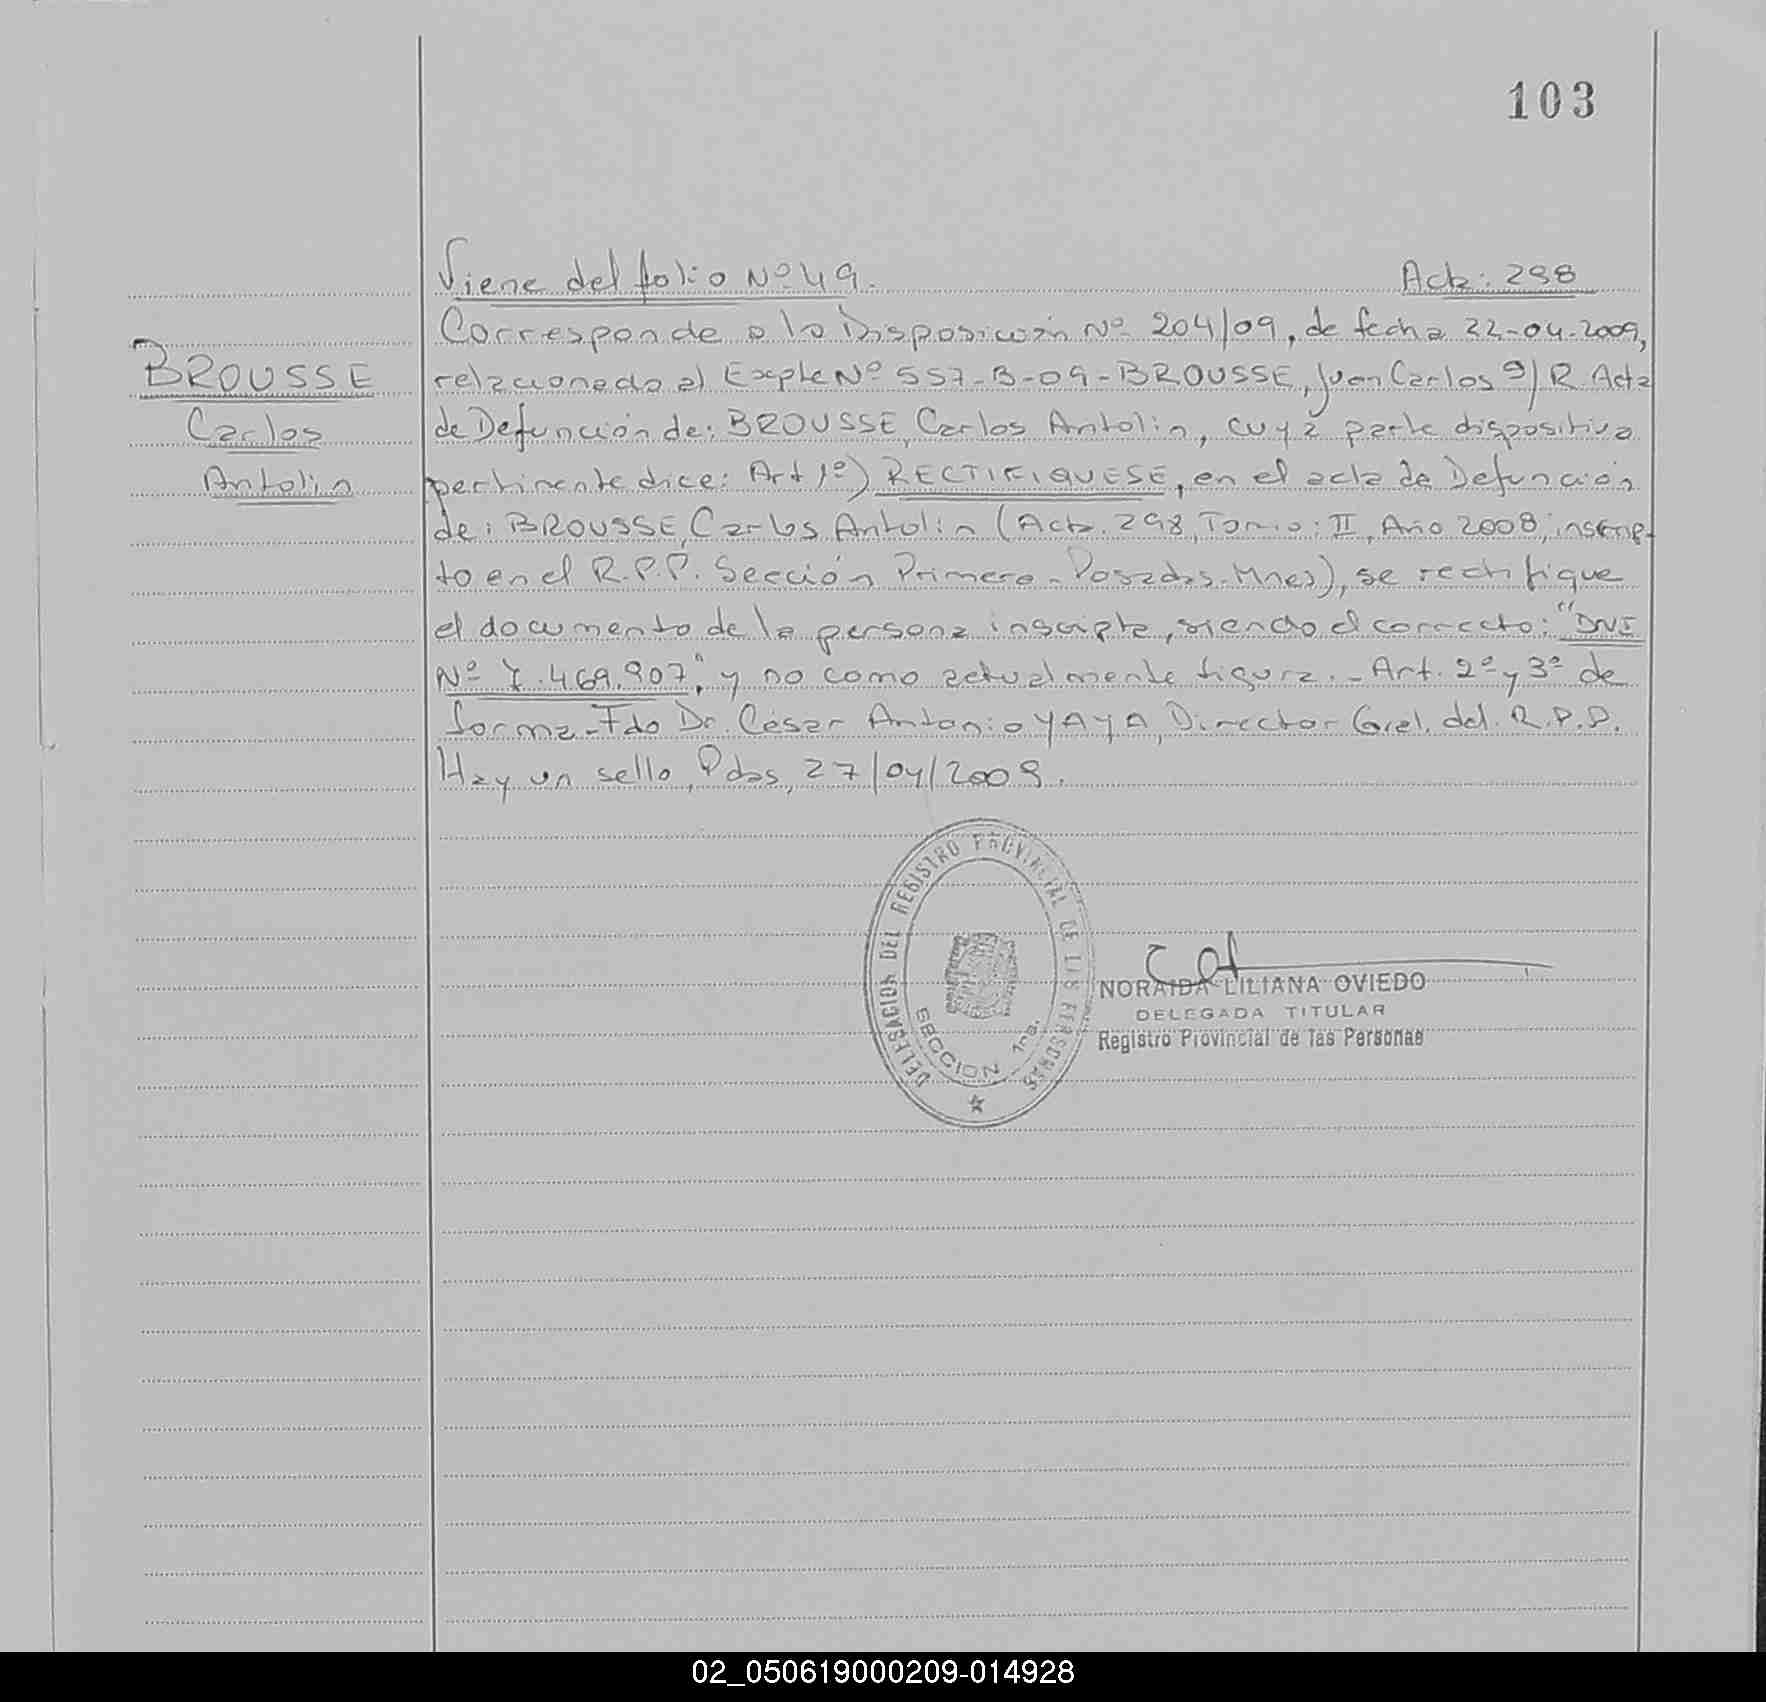 103
Viene del folio Nº 49. Acta: 298
BROUSSE
Carlos
Antolin
Corresponde a la Disposición Nº 204/09, de fecha 22-04-2009,
relacionada al Expte Nº 557-B-09-BROUSSE, Juan Carlos S/ R. Acta
de Defunción de: BROUSSE, Carlos Antolin, cuya parte dispositiva
pertinente dice: Art 1º) RECTIFIQUESE, en el acta de Defunción
de: BROUSSE, Carlos Antolin (Acta. 298, Tomo: II, Año 2008, inscrip-
to en el R.P.P. Sección Primera - Posadas - Mnes), se rectifique
el documento de la persona inscripta, siendo el correcto: "DNI
Nº 7.469.907", y no como actualmente figura. - Art. 2º y 3º de
forma - Fdo Dr. César Antonio YAYA, Director Gral. del. R.P.P.
Hay un sello, Pdas, 27/04/2009.
DELEGACION DEL REGISTRO PROVINCIAL DE LAS PERSONAS
SECCION 1ra.
NORAIDA LILIANA OVIEDO
DELEGADA TITULAR
Registro Provincial de las Personas
02_050619000209-014928